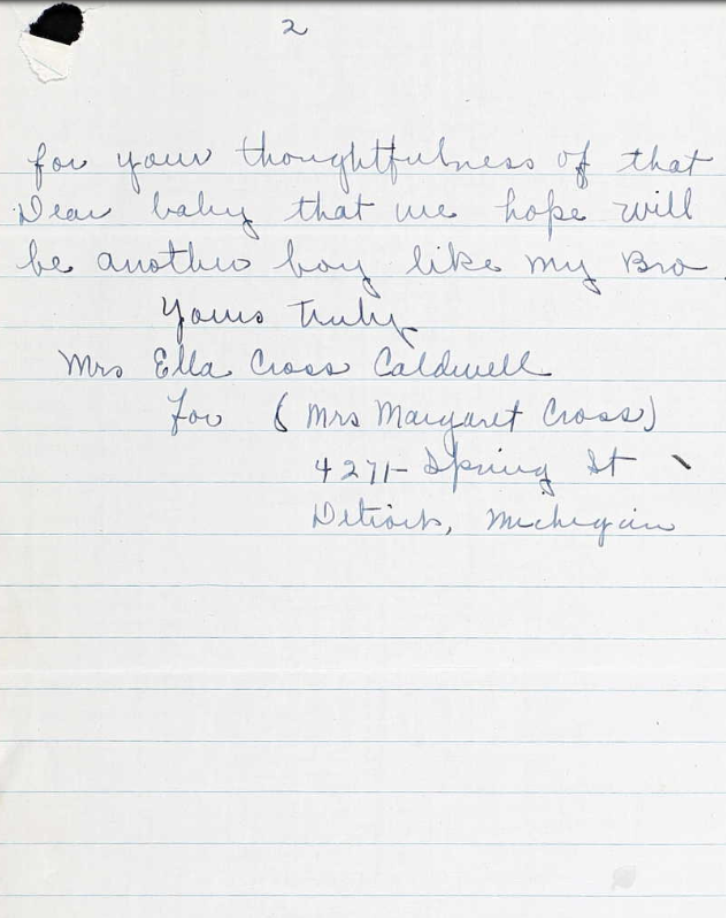 2
for your thoughtfulness of that
Dear baby that we hope will
be another boy like my Bro.
Yours truly
Mrs Ella Cross Caldwell
For (Mrs Margaret Cross)
4271- Spring St
Detroit, Michigan